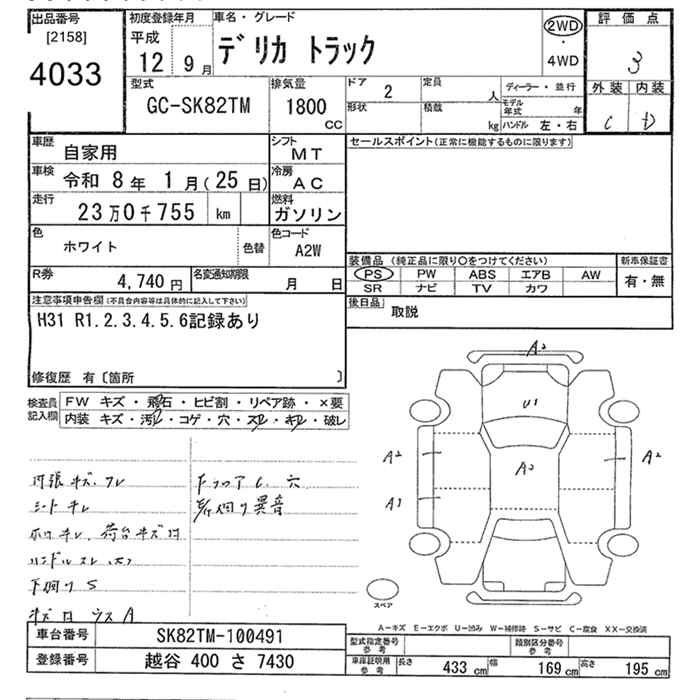 出品番号 初度登録年月 車名・グレード 評価点
[2158] 平成 デリカ トラック 2WD
4033 12年 9月 ・ 4WD 3
型式 排気量 ドア 2 定員 人 ディーラー・並行 外装 内装
GC-SK82TM 1800 CC 形状 積載 kg モデル年式 年 C D
ハンドル 左・右
車歴 自家用 シフト MT セールスポイント(正常に機能するものに限ります)
車検 令和 8年 1月(25日) 冷房 AC
走行 23万0千755 km 燃料 ガソリン
色 ホワイト 色替 色コード A2W
装備品 (純正品に限り〇をつけてください) 新車保証書
PS PW ABS エアB AW 有・無
SR ナビ TV カワ
R券 4,740円 名変通知期限 月 日
後日品 取説
注意事項申告欄(不具合内容等は具体的に記入して下さい)
H31 R1.2.3.4.5.6記録あり
修復歴 有〔箇所 〕
検査員記入欄 FW キズ・飛石・ヒビ割・リペア跡・×要
内装 キズ・汚れ・コゲ・穴・スレ・キレ・破レ
A2
U1
A2 A2 A2
A1
シート キレ
荷台キズ凹
下廻りS
異音
スペア
A－キズ E－エクボ U－凹み W－補修跡 S－サビ C－腐食 XX－交換済
車台番号 SK82TM-100491 型式指定番号 参考 類別区分番号 参考
登録番号 越谷 400 さ 7430 車庫証明用 参考 長さ 433cm 幅 169cm 高さ 195cm